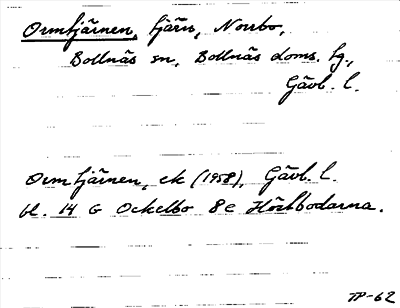 Ormtjärnen, tjärn, Norrbo,
Bollnäs sn, Bollnäs doms. tg.,
Gävl. l.
Ormtjärnen, ek (1958), Gävl. l.
bl. 14 G Ockelbo 8e Höstbodarna.
TP-62